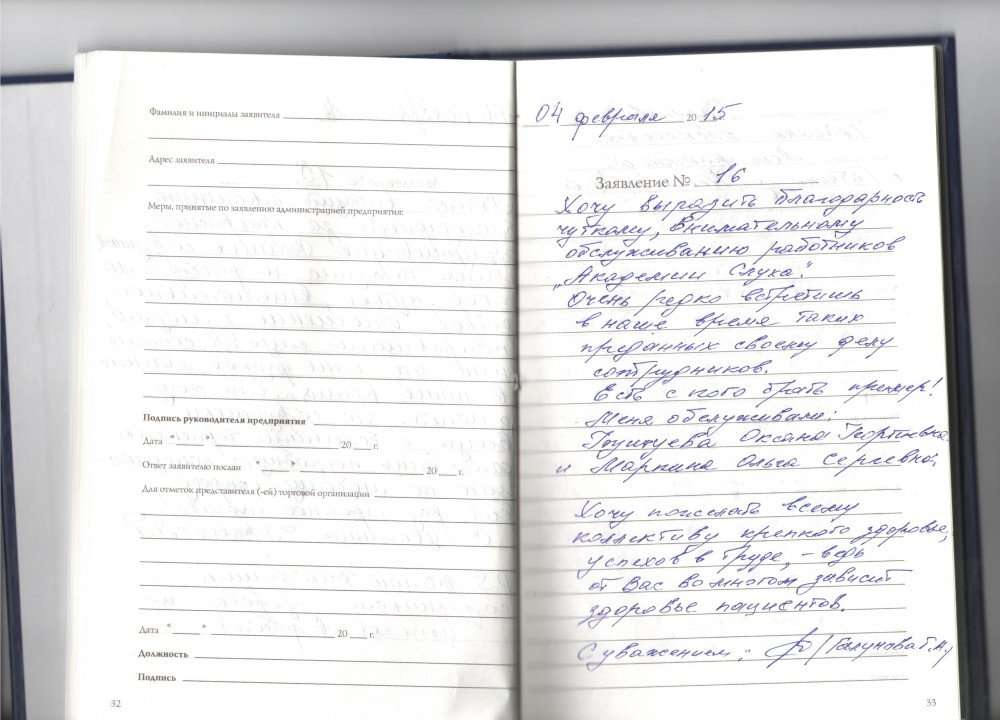 Фамилия и инициалы заявителя
Адрес заявителя
Меры, принятые по заявлению администрацией предприятия:
Подпись руководителя предприятия
Дата " " 20 г.
Ответ заявителю послан " " 20 г.
Для отметок представителя (-ей) торговой организации
Дата " " 20 г.
Должность
Подпись
32
04 февраля 2015
Заявление № 16
Хочу выразить благодарность
чуткому, внимательному
обслуживанию работников
„Академии Слуха."
Очень редко встретишь
в наше время таких
преданных своему делу
сотрудников.
Есть с кого брать пример!
Меня обслуживали:
Оксана Георгиевна
и Маркина Ольга Сергеевна;
Хочу пожелать всему
коллективу крепкого здоровья,
успехов в труде, – ведь
от Вас во многом зависит
здоровье пациентов.
С уважением: /Галунова Т.А./
33